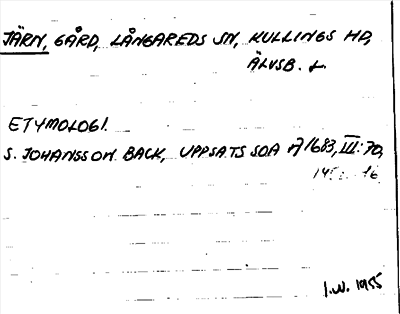 JÄRN, GÅRD, LÅNGAREDS SN, KULLINGS HD,
ÄLVSB. L.
ETYMOLOGI.
S. JOHANSSON BACK, UPPSATS SOA A1683, III: 70,
16
I.W. 1955